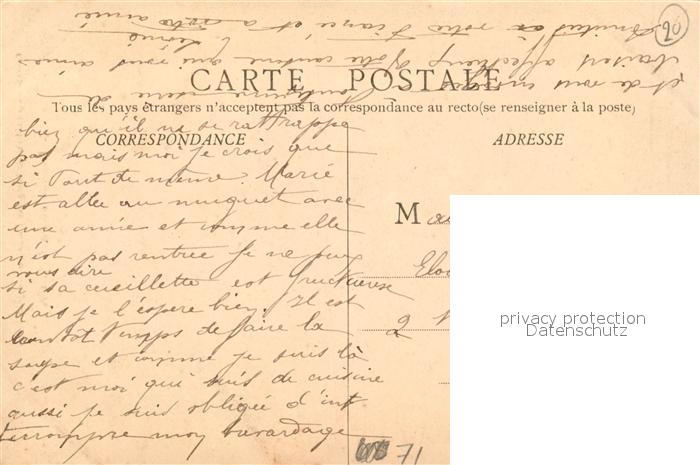 20
CARTE POSTALE
Tous les pays étrangers n'acceptent pas la correspondance au recto (se renseigner à la poste)
CORRESPONDANCE
ADRESSE
bien qu'il ne se rattrappe
pas mais moi je crois que
si Tout de même. Marie
est allée au muguet avec
une amie et comme elle
n'est pas rentrée je ne puis
vous dire
si sa cueillette est fructueuse
Mais je l'espère bien. Il est
temps de faire la
soupe et comme je suis là
c'est moi qui suis de cuisine
aussi je suis obligée d'int
terrompre mon bavardage
et de vous
baisers affectueux Votre cousine qui vous aime
Amitiés à votre fiancé et à votre
M
Elo
2
71
privacy protection
Datenschutz